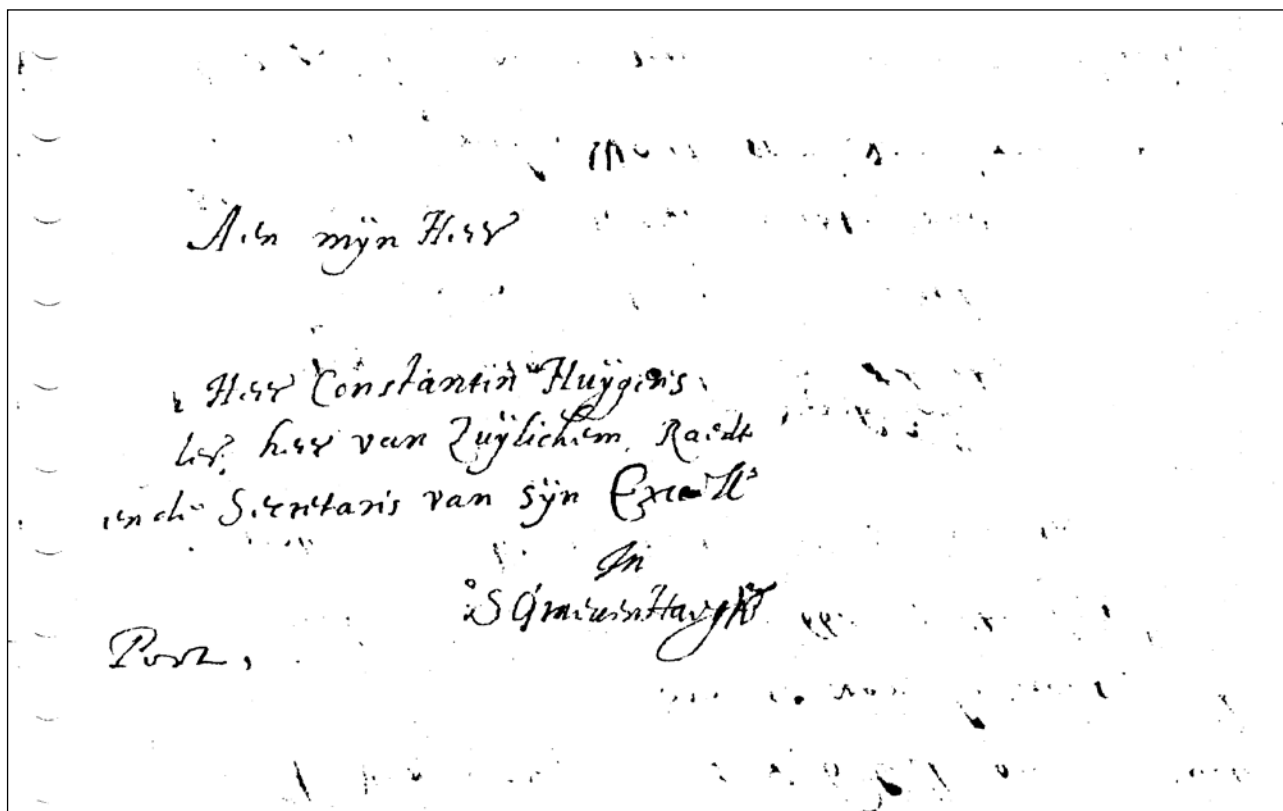 Aen mÿn Heer
Heer Constantin Huÿgens
heer van Zuÿlichem, Raedt
ende Secretaris van sÿn Excell
In
SGraevenHaeghe
Port.